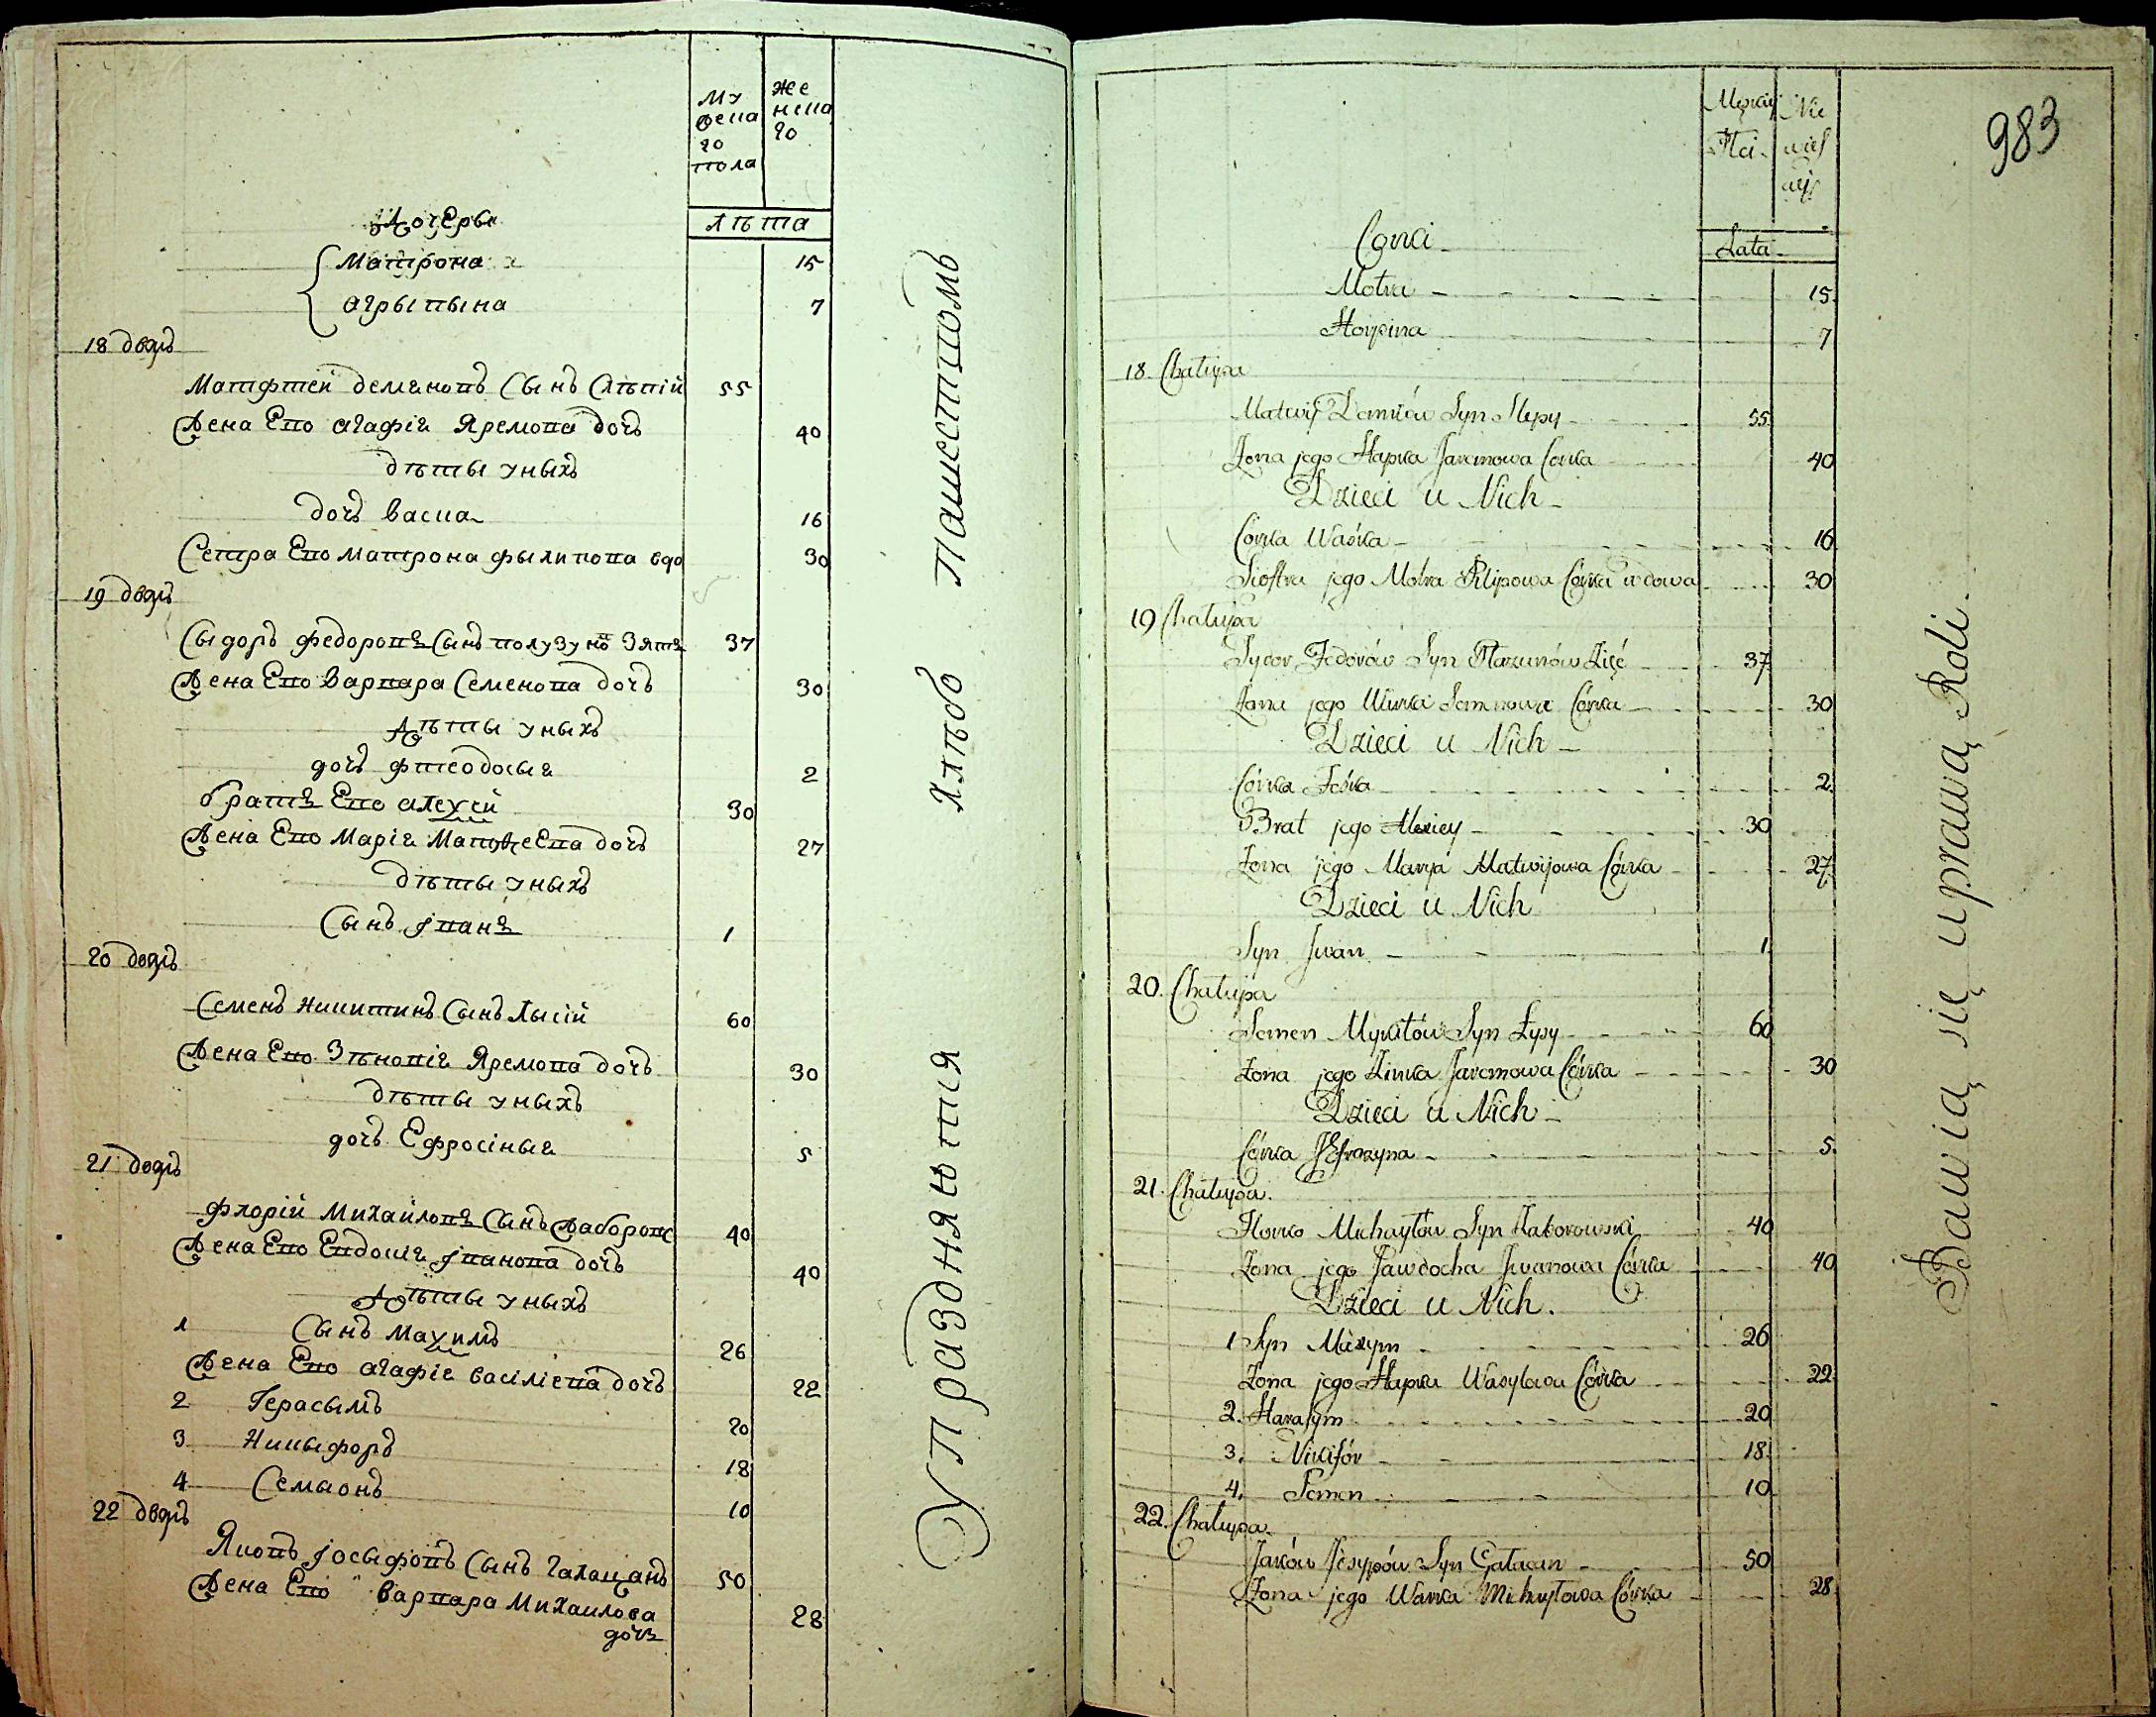 Му
жеска
го
пола
Же
неска
го
лѣта
Дочеры
Матрона 15
Агрыпына 7
18 дворъ
Матфтей демяновъ Сынъ Слѣпій 55
Жена Его Агафія Яремова дочъ 40
дѣты уныхъ
дочъ Васка 16
Сетра Его Матрона Фылипова вдо 30
19 дворъ
Сыдоръ Федоровъ Сынъ Зять 37
Жена Его Варвара Семенова дочъ 30
Дѣты уныхъ
дочъ Фтеодосыя 2
братъ Его Алеѯей 30
Жена Его Марія дочъ 27
дѣты уныхъ
Сынъ Іванъ 1
20 дворъ
Семенъ Никитинъ Сынъ Лысій 60
Жена Его Зѣновія Яремова дочъ 30
дѣты уныхъ
дочъ Ефросіныя 5
21 дворъ
Флорій Михайловъ Сынъ 40
Жена Его Евдокія Іванова дочъ 40
Дѣты уныхъ
1 Сынъ Маѯимъ 26
Жена Его Агафія Васіліева дочъ 22
2 Герасымъ 20
3 Никыфоръ 18
4 Семыонъ 10
22 дворъ
Яковъ Іосыфовъ Сынъ Галацанъ 50
Жена Его Варвара Михаилова 28
дочъ
Упражняются Хлѣбо Пашествомъ
983
Męzkiey
Płci
Nie
wieś
ciej
Lata
Corki
Motra 15.
Horpina 7
18. Chałupa
Matwij Demków Syn Slepy 55.
Żona jego Hapka Jaremowa Corka 40
Dzieci u Nich
Córka Waśka 16
Siostra jego Motra Pilipowa Córka wdowa 30
19 Chałupa
Sydor Fedorów Syn Zięć 37.
Żona jego Warka Semenowa Córka 30
Dzieci u Nich
Córka Feśka 2.
Brat jego Alexiey 30
Żona jego Marya Matwijowa Córka 27.
Dzieci u Nich
Syn Iwan 1.
20. Chałupa
Semen Mykitów Syn Łysy 60
Żona jego Zinka Jaremowa Córka 30
Dzieci u Nich
Córka Jefrozyna 5.
21. Chałupa.
Florko Michayłów Syn Zaborowski 40
Żona jego Jawdocha Iwanowa Córka 40
Dzieci u Nich.
1 Syn Maxym 26
Żona jego Hapka Wasylowa Córka 22
2. Harasym 20
3. Nikifór 18.
4. Semen 10
22. Chałupa.
Jaków Jósypów Syn Gałacan 50
Żona jego Warka Michayłowa Córka 28.
Bawią się uprawą Roli.